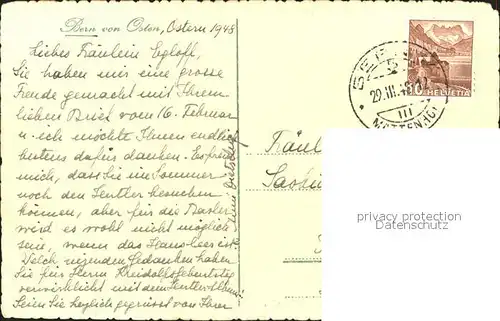 Bern von Osten, Ostern 1948
Liebes Fräulein Egloff,
Sie haben mir eine grosse
Freude gemacht mit Ihrem
lieben Brief vom 16. Februar
u. ich möchte Ihnen endlich
bestens dafür danken. Es freut
mich, dass Sie im Sommer
noch den Sentler besuchen
können, aber für die Basler
wird es wohl nicht möglich
sein, wenn das Haus leer ist.
Welch Gedanken haben
Sie für Herrn Kreidolfs Geburtstag
verwirklicht mit dem
Seien Sie herzlich gegrüsst von Ihrer
BER
29.III.48
III
MATTENHOF
10 HELVETIA
Fräul
Sabi
privacy protection
Datenschutz